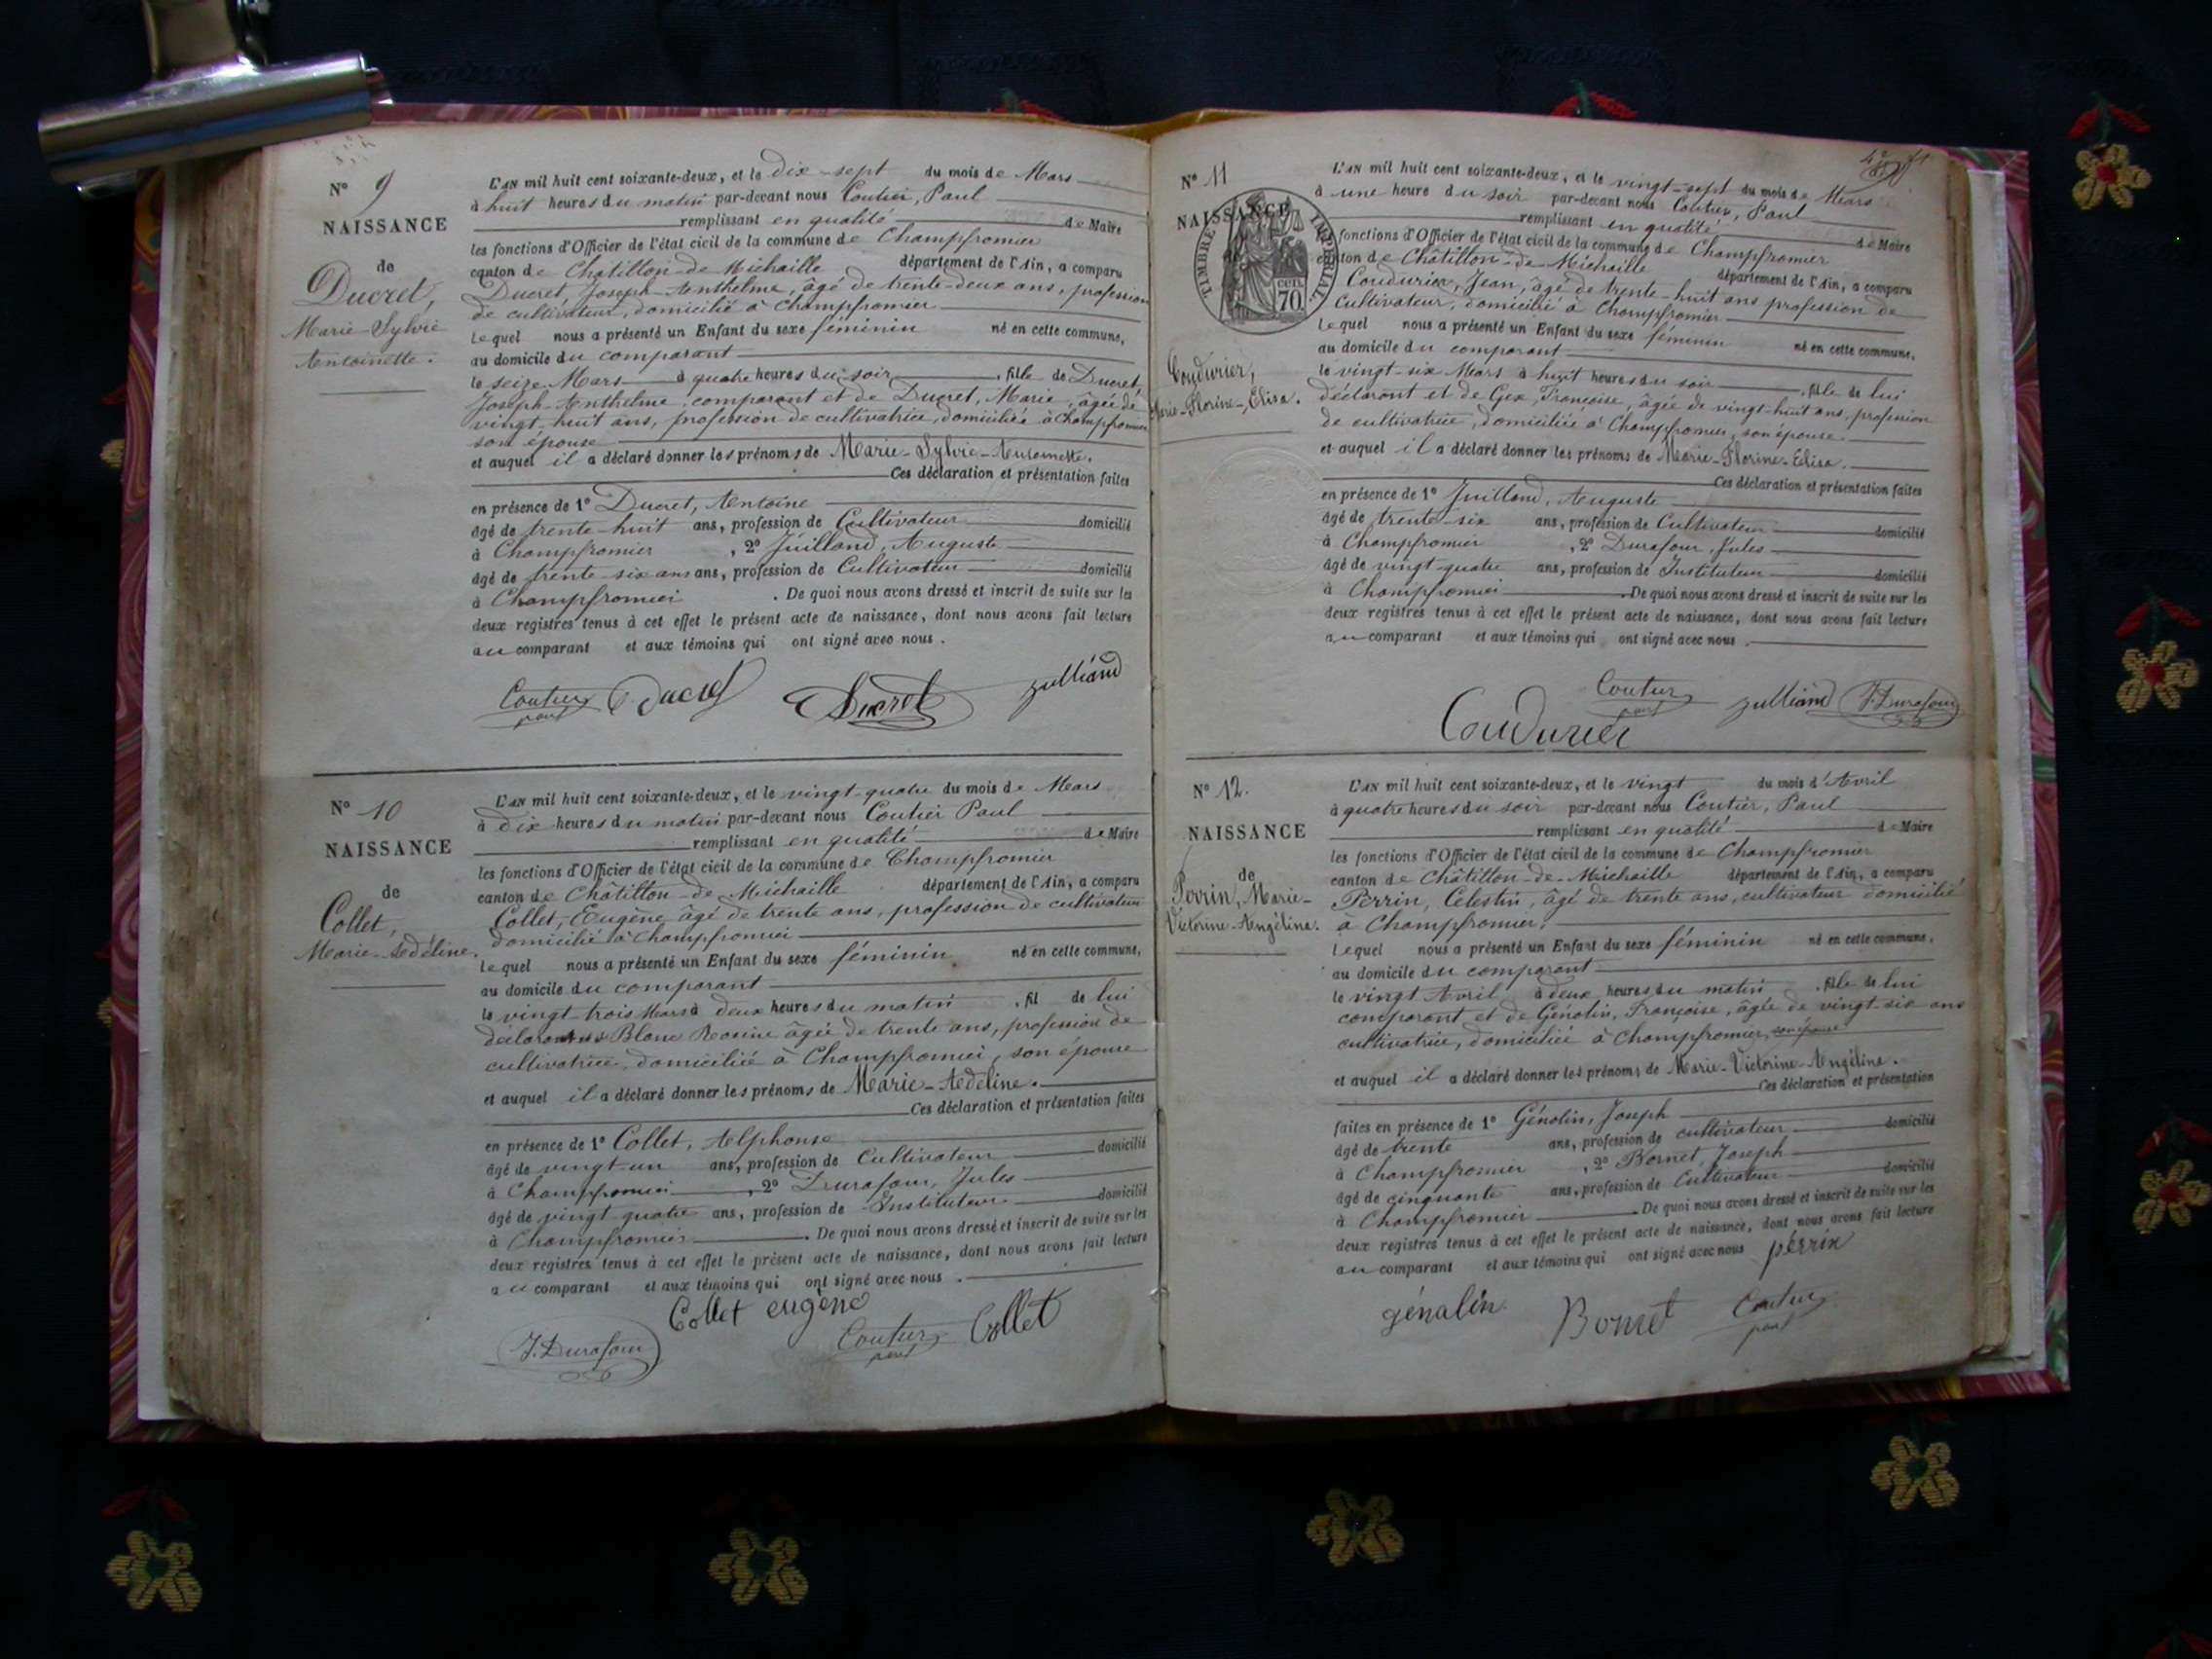 N° 9
NAISSANCE
de
Ducret,
Marie-Sylvie
Antoinette.
L'AN mil huit cent soixante-deux, et le dix-sept du mois de Mars
à huit heures du matin par-devant nous Coutier, Paul
remplissant en qualité de Maire
les fonctions d'Officier de l'état civil de la commune de Champfromier
canton de Châtillon-de-Michaille département de l'Ain, a comparu
Ducret, Joseph-Anthelme, âgé de trente-deux ans, profession
de cultivateur, domicilié à Champfromier
Lequel nous a présenté un Enfant du sexe féminin né en cette commune,
au domicile du comparant
le seize Mars à quatre heures du soir, fille de Ducret,
Joseph-Anthelme, comparant et de Ducret, Marie, âgée de
vingt-huit ans, profession de cultivatrice, domiciliée à Champfromier
son épouse
et auquel il a déclaré donner les prénoms de Marie-Sylvie-Antoinette.
Ces déclaration et présentation faites
en présence de 1° Ducret, Antoine
âgé de trente-huit ans, profession de Cultivateur domicilié
à Champfromier, 2° Juilland, Auguste
âgé de trente-six ans ans, profession de Cultivateur domicilié
à Champfromier. De quoi nous avons dressé et inscrit de suite sur les
deux registres tenus à cet effet le présent acte de naissance, dont nous avons fait lecture
au comparant et aux témoins qui ont signé avec nous.
Coutier Ducret Ducret Julliand
paul
N° 10
NAISSANCE
de
Collet,
Marie-Adéline.
L'AN mil huit cent soixante-deux, et le vingt-quatre du mois de Mars
à dix heures du matin par-devant nous Coutier Paul
remplissant en qualité de Maire
les fonctions d'Officier de l'état civil de la commune de Champfromier
canton de Châtillon-de-Michaille département de l'Ain, a comparu
Collet, Eugène, âgé de trente ans, profession de cultivateur
domicilié à Champfromier
Lequel nous a présenté un Enfant du sexe féminin né en cette commune,
au domicile du comparant
le vingt-trois Mars à deux heures du matin, fil de lui
déclarant et Blanc âgée de trente ans, profession de
cultivatrice, domiciliée à Champfromier, son épouse
et auquel il a déclaré donner les prénoms de Marie-Adeline.
Ces déclaration et présentation faites
en présence de 1° Collet, Alphonse
âgé de vingt-un ans, profession de Cultivateur domicilié
à Champfromier, 2° Durafour, Jules
âgé de vingt-quatre ans, profession de Instituteur domicilié
à Champfromier. De quoi nous avons dressé et inscrit de suite sur les
deux registres tenus à cet effet le présent acte de naissance, dont nous avons fait lecture
au comparant et aux témoins qui ont signé avec nous.
Collet eugène
J. Durafour Coutier Collet
paul
N° 11
NAISSANCE
TIMBRE IMPERIAL
CEN. 70
Coudurier,
Marie-Florine-Elisa.
L'AN mil huit cent soixante-deux, et le vingt-sept du mois de Mars
à une heure du soir par-devant nous Coutier, Paul
remplissant en qualité de Maire
fonctions d'Officier de l'état civil de la commune de Champfromier
canton de Châtillon-de-Michaille département de l'Ain, a comparu
Coudurier, Jean, âgé de trente-huit ans profession de
cultivateur, domicilié à Champfromier
Lequel nous a présenté un Enfant du sexe féminin né en cette commune,
au domicile du comparant
le vingt-six Mars à huit heures du soir, fille de lui
déclarant et de Gex, Françoise, âgée de vingt-huit ans, profession
de cultivatrice, domiciliée à Champfromier, son épouse.
et auquel il a déclaré donner les prénoms de Marie-Florine-Elisa.
Ces déclaration et présentation faites
en présence de 1° Juilland, Auguste
âgé de trente-six ans, profession de Cultivateur domicilié
à Champfromier, 2° Durafour, Jules
âgé de vingt-quatre ans, profession de Instituteur domicilié
à Champfromier. De quoi nous avons dressé et inscrit de suite sur les
deux registres tenus à cet effet le présent acte de naissance, dont nous avons fait lecture
au comparant et aux témoins qui ont signé avec nous.
Coutier Julliand J. Durafour
paul
Coudurier
N° 12.
NAISSANCE
de
Perrin, Marie-
Victorine-Angéline.
L'AN mil huit cent soixante-deux, et le vingt du mois d'Avril
à quatre heures du soir par-devant nous Coutier, Paul
remplissant en qualité de Maire
les fonctions d'Officier de l'état civil de la commune de Champfromier
canton de Châtillon-de-Michaille département de l'Ain, a comparu
Perrin, Célestin, âgé de trente ans, cultivateur domicilié
à Champfromier,
Lequel nous a présenté un Enfant du sexe féminin né en cette commune,
au domicile du comparant
le vingt Avril à deux heures du matin, fille de lui
comparant et de Génolin, Françoise, âgée de vingt-six ans
cultivatrice, domiciliée à Champfromier, son épouse
et auquel il a déclaré donner les prénoms de Marie-Victorine-Angéline.
Ces déclaration et présentation
faites en présence de 1° Génolin, Joseph
âgé de trente ans, profession de cultivateur domicilié
à Champfromier, 2° Bornet, Joseph
âgé de cinquante ans, profession de Cultivateur domicilié
à Champfromier. De quoi nous avons dressé et inscrit de suite sur les
deux registres tenus à cet effet le présent acte de naissance, dont nous avons fait lecture
au comparant et aux témoins qui ont signé avec nous perrin
génalin Bornet Coutier
paul